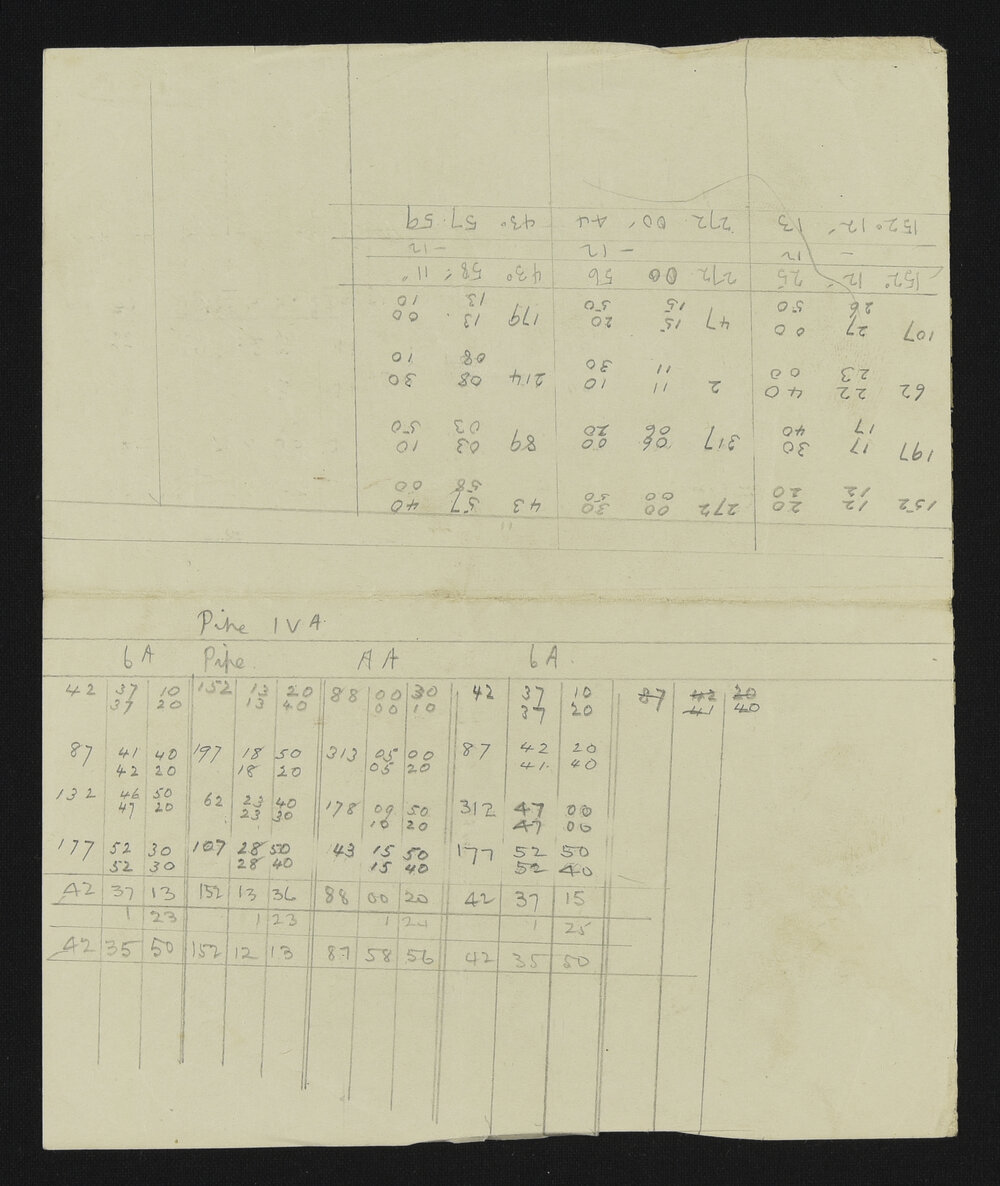 152 12 20 272 00 30 43 57 40
12 20 00 50 58 00
197 17 30 317 06 00 89 03 10
17 40 06 20 03 50
62 22 40 2 11 10 214 08 30
23 00 11 30 08 10
107 27 00 47 15 20 179 13 00
26 50 15 50 13 10
152° 12' 25 272 00 56 43° 58' 11"
- 12 - 12 - 12
152° 12' 13 272 00' 44 43° 57 59
Pipe IVA
6A Pipe AA 6A
42 37 10 152 13 20 88 00 30 42 37 10 87 42 20
37 20 13 40 00 10 37 20 41 40
87 41 40 197 18 50 313 05 00 87 42 20
42 20 18 20 05 20 41 40
132 46 50 62 23 40 178 09 50 312 47 00
47 20 23 30 10 20 47 00
177 52 30 107 28 50 43 15 50 177 52 50
52 30 28 40 15 40 52 40
42 37 13 152 13 36 88 00 20 42 37 15
1 23 1 23 1 24 1 25
42 35 50 152 12 13 87 58 56 42 35 50